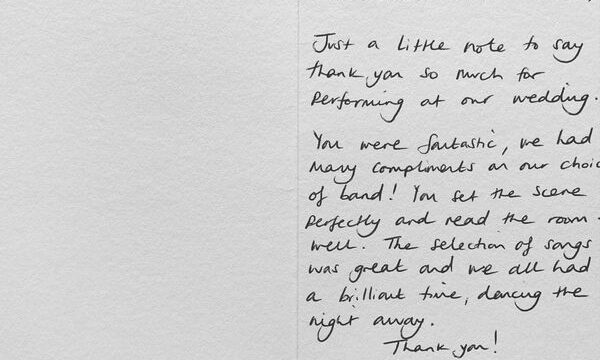 Just a little note to say
thank you so much for
performing at our wedding.
You were fantastic, we had
many compliments on our choic
of band! You set the scene
perfectly and read the room
well. The selection of songs
was great and we all had
a brilliant time, dancing the
night away.
Thank you!